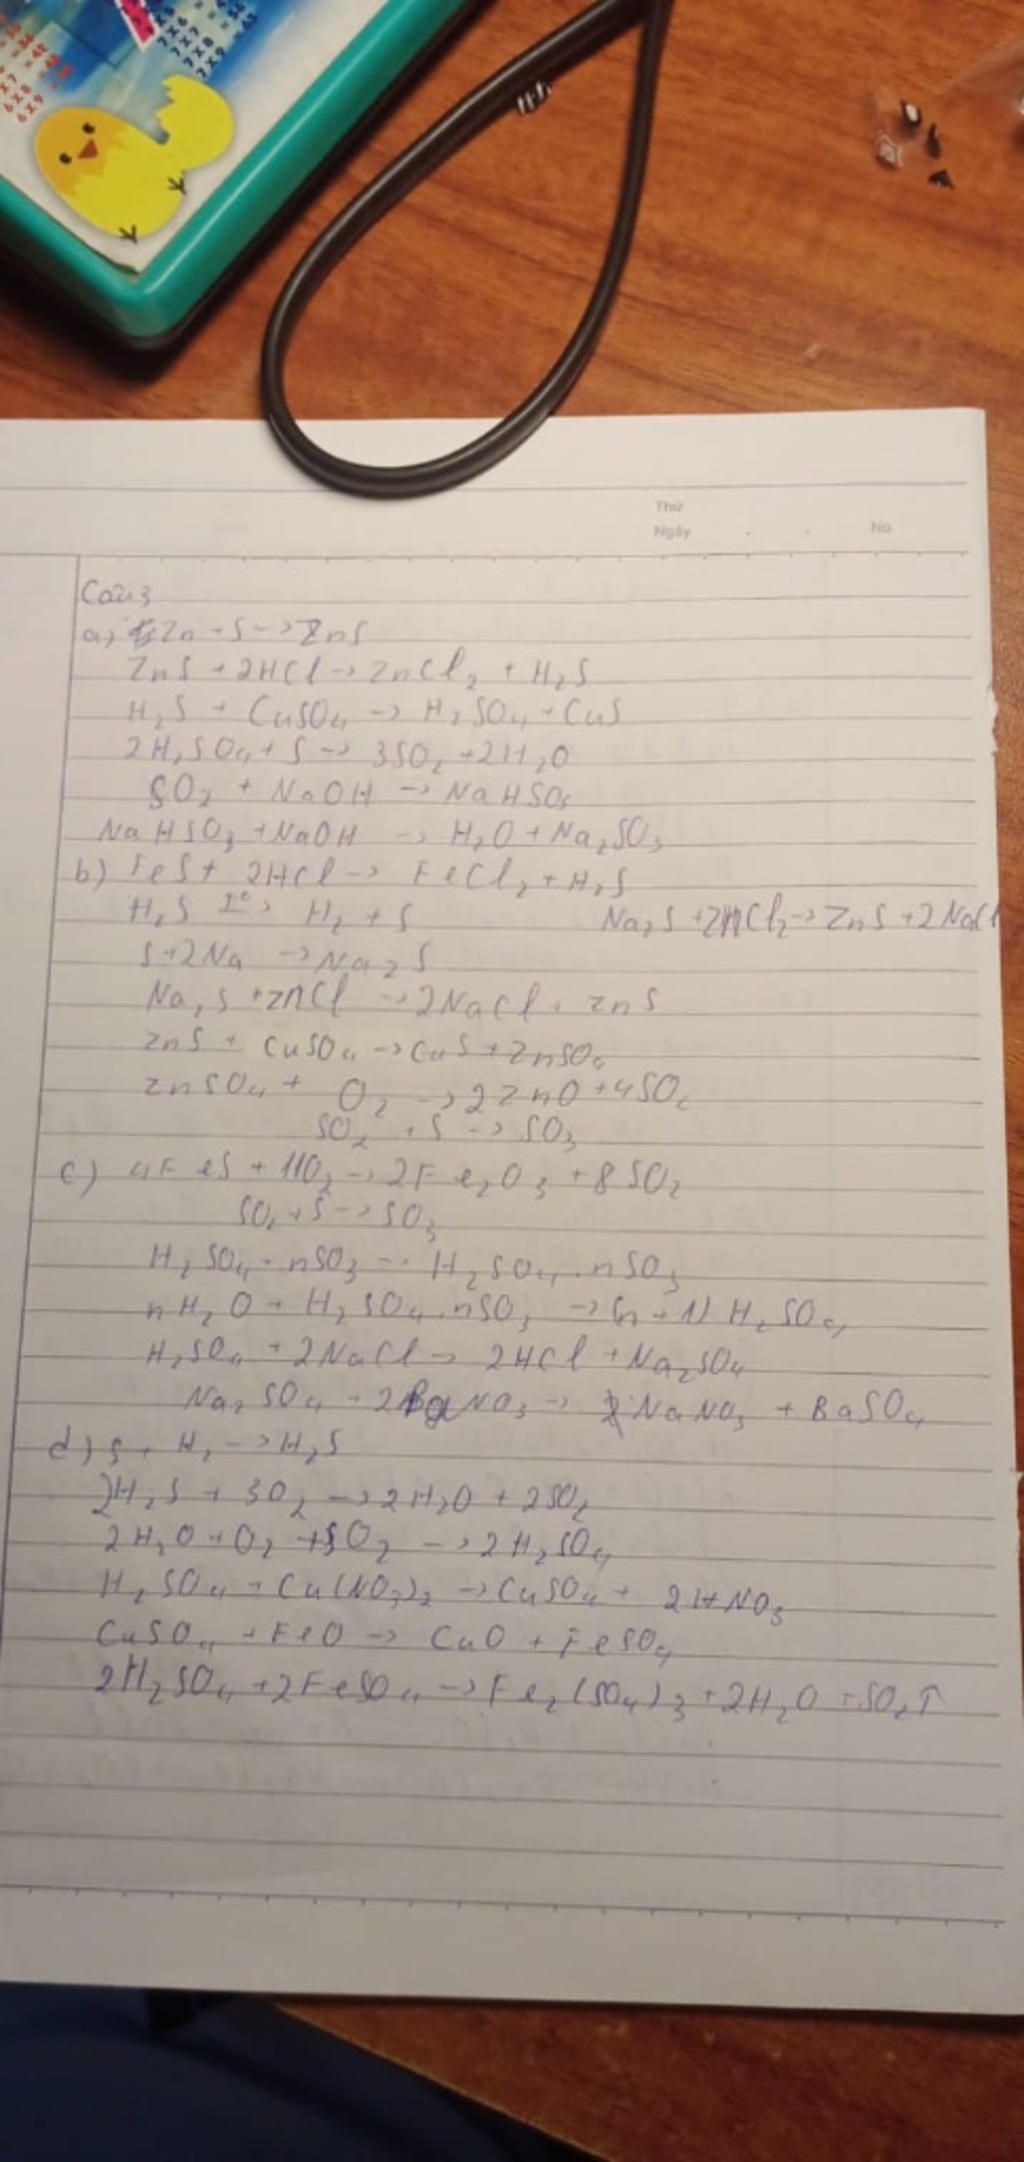 Thứ
Ngày
No.
Câu 3
a, Zn + S -> ZnS
ZnS + 2HCl -> ZnCl₂ + H₂S
H₂S + CuSO₄ -> H₂SO₄ + CuS
2H₂SO₄ + S -> 3SO₂ + 2H₂O
SO₂ + NaOH -> NaHSO₃
NaHSO₃ + NaOH -> H₂O + Na₂SO₃
b) FeS + 2HCl -> FeCl₂ + H₂S
H₂S -> H₂ + S
Na₂S + ZnCl₂ -> ZnS + 2NaCl
S + 2Na -> Na₂S
Na₂S + ZnCl -> 2NaCl + ZnS
ZnS + CuSO₄ -> CuS + ZnSO₄
ZnSO₄ + O₂ -> 2ZnO + 4SO₂
SO₂ + S -> SO₃
c) 4FeS + 11O₂ -> 2Fe₂O₃ + 8SO₂
SO₂ + S -> SO₃
H₂SO₄ + nSO₃ -> H₂SO₄.nSO₃
nH₂O + H₂SO₄.nSO₃ -> (n+1) H₂SO₄
H₂SO₄ + 2NaCl -> 2HCl + Na₂SO₄
Na₂SO₄ + 2BaNO₃ -> NaNO₃ + BaSO₄
d) S + H₂ -> H₂S
2H₂S + 3O₂ -> 2H₂O + 2SO₂
2H₂O + O₂ + SO₂ -> 2H₂SO₄
H₂SO₄ + Cu(NO₃)₂ -> CuSO₄ + 2HNO₃
CuSO₄ + FeO -> CuO + FeSO₄
2H₂SO₄ + 2FeSO₄ -> Fe₂(SO₄)₃ + 2H₂O + SO₂↑